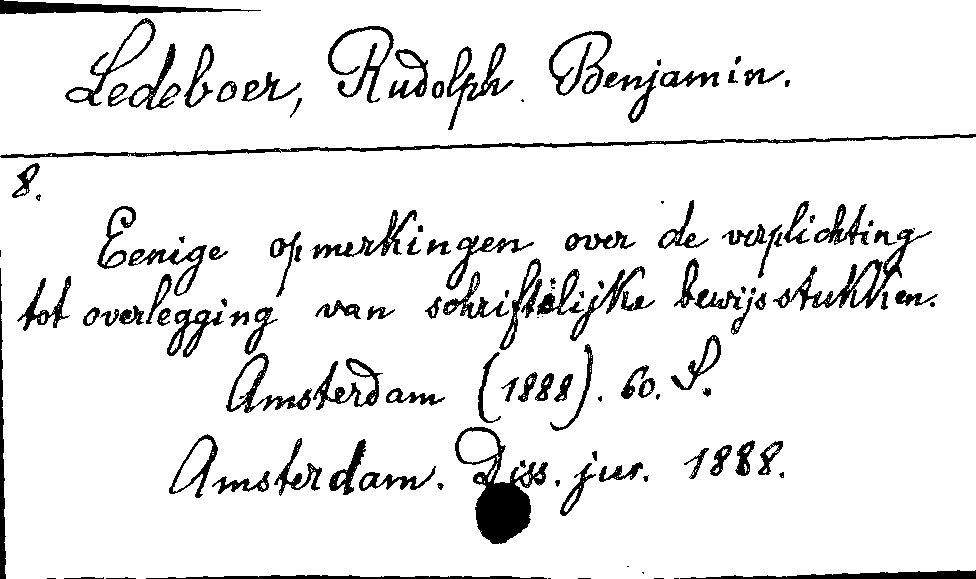 Ledeboer, Rudolph Benjamin.
8.
Eenige opmerkingen over de verplichting
tot overlegging van schriftelijke bewijsstukken.
Amsterdam (1888). 60. S.
Amsterdam. Diss. jur. 1888.